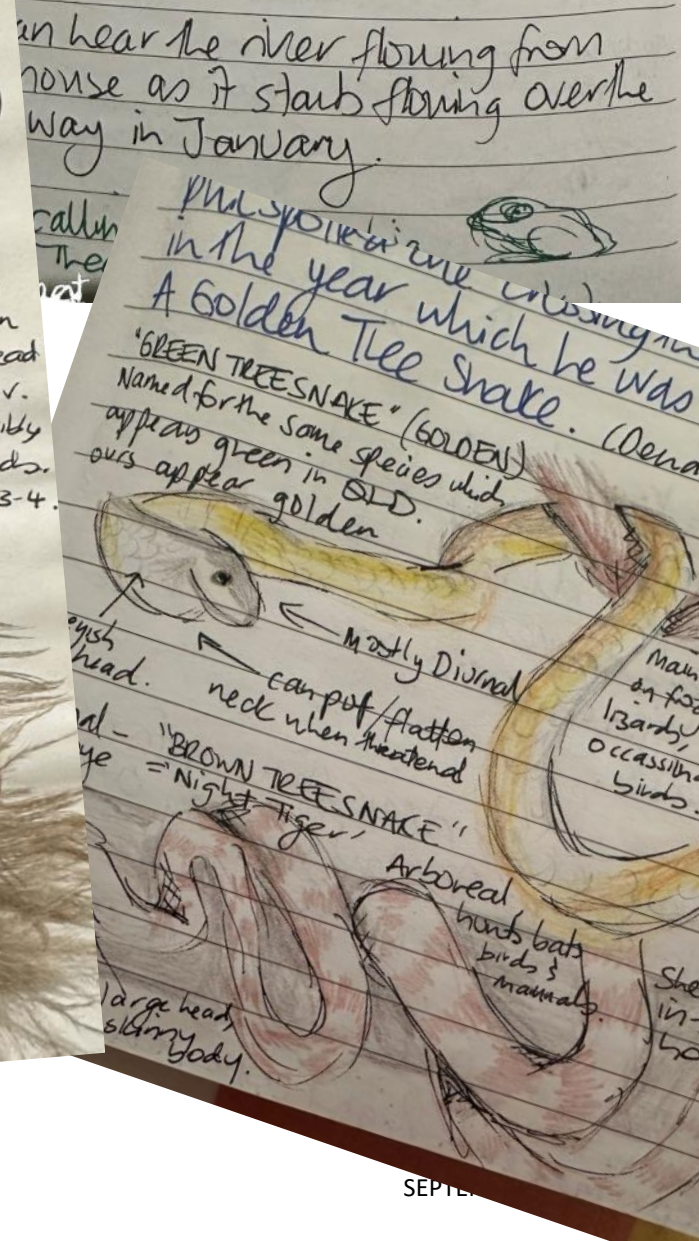 an hear the river flowing from
house as it starts flowing over the
way in January.
callin
The
hat
n
ead
v.
ibly
ds.
3-4.
in the year which he was
A Golden Tree Snake. (Dend
"GREEN TREESNAKE" (GOLDEN)
Named for the same species which
appears green in QLD.
ours appear golden
eyish
head.
Mostly Diurnal
can puf/flatten
neck when threatenend
Main
on fro
lizards,
occassiona
birds.
al-
ye
"BROWN TREESNAKE"
='Night Tiger'
Arboreal
hunts bats
birds &
mammals.
large head,
skinny
body.
She
in-
ho
SEPTE